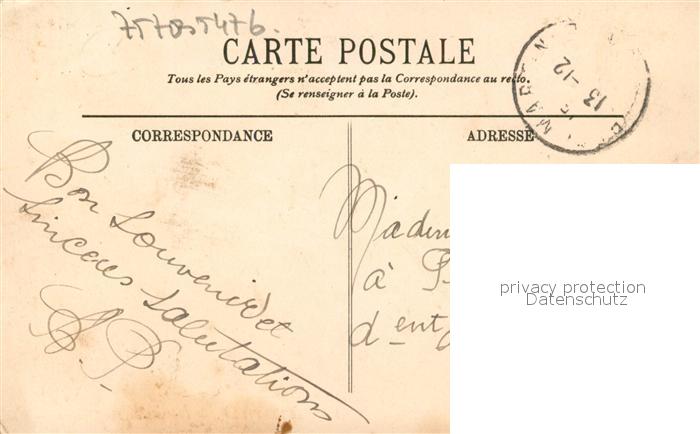 CARTE POSTALE
Tous les Pays étrangers n'acceptent pas la Correspondance au recto.
(Se renseigner à la Poste).
CORRESPONDANCE
ADRESSE
13 -12
Bon Souvenir et
Sincères Salutations
A. P.
à
privacy protection
Datenschutz